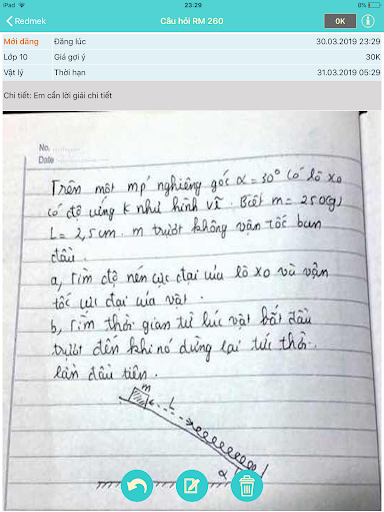 iPad 23:29 0%
Redmek Câu hỏi RM 260 OK
Mới đăng Đăng lúc 30.03.2019 23:29
Lớp 10 Giá gợi ý 30K
Vật lý Thời hạn 31.03.2019 05:29
Chi tiết: Em cần lời giải chi tiết
No. ............
Date ............
Trên một mp' nghiêng góc α = 30° có lò xo
có độ cứng K như hình vẽ. Biết m = 250(g)
L = 2,5cm. m trượt không vận tốc ban
đầu.
a, Tìm độ nén cực đại của lò xo và vận
tốc cực đại của vật.
b, Tìm thời gian từ lúc vật bắt đầu
trượt đến khi nó dừng lại tức thời
lần đầu tiên.
m
L
α